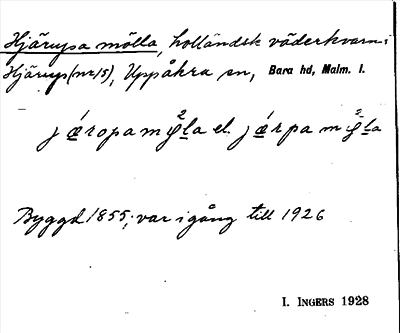 Hjärupa mölla, holländsk väderkvarn i
Hjärup (nr 15), Uppåkra sn, Bara hd, Malm. l.
jǽropamφ̀la el. jǽrpamφ̀la
Byggd 1855; var i gång till 1926
I. INGERS 1928